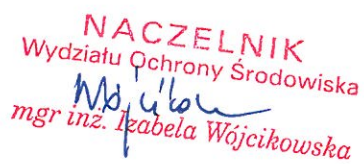 NACZELNIK
Wydziału Ochrony Środowiska
mgr inż. Izabela Wójcikowska